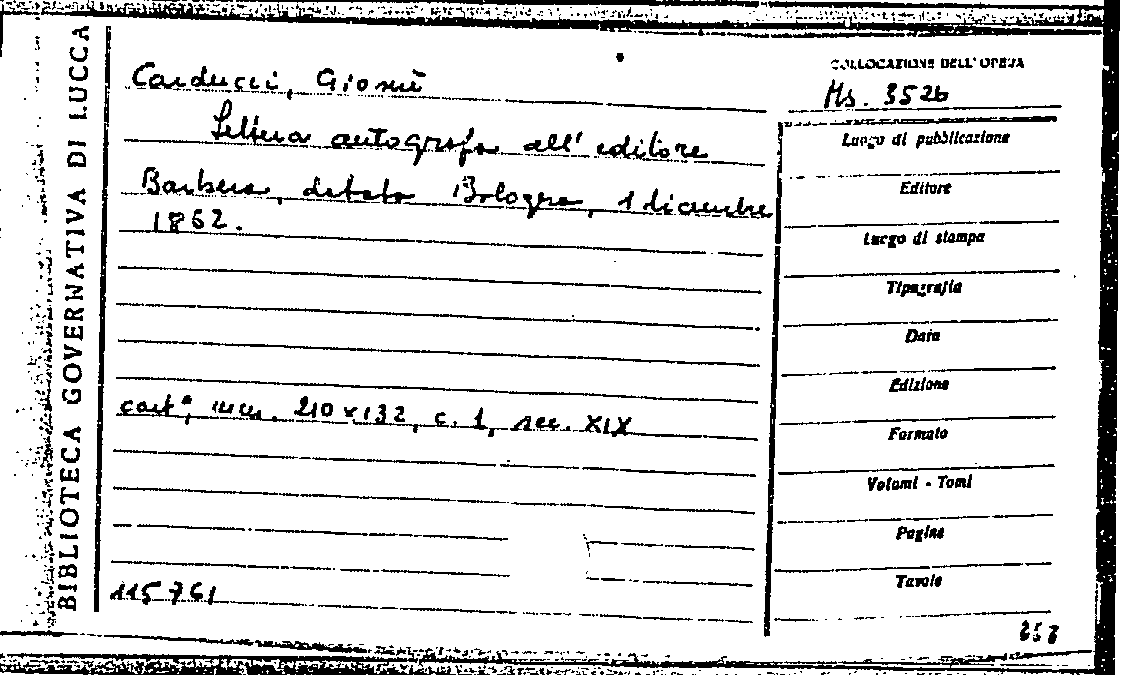 BIBLIOTECA GOVERNATIVA DI LUCCA
Carducci, Giosuè
Lettera autografa all' editore
Barbera, datata Bologna, 1 dicembre
1862.
cart.ª, mm. 210x132, c. 1, sec. XIX
115761
COLLOCAZIONE DELL' OPERA
Ms. 3526
Luogo di pubblicazione
Editore
Luogo di stampa
Tipografia
Data
Edizione
Formato
Volumi - Tomi
Pagine
Tavole